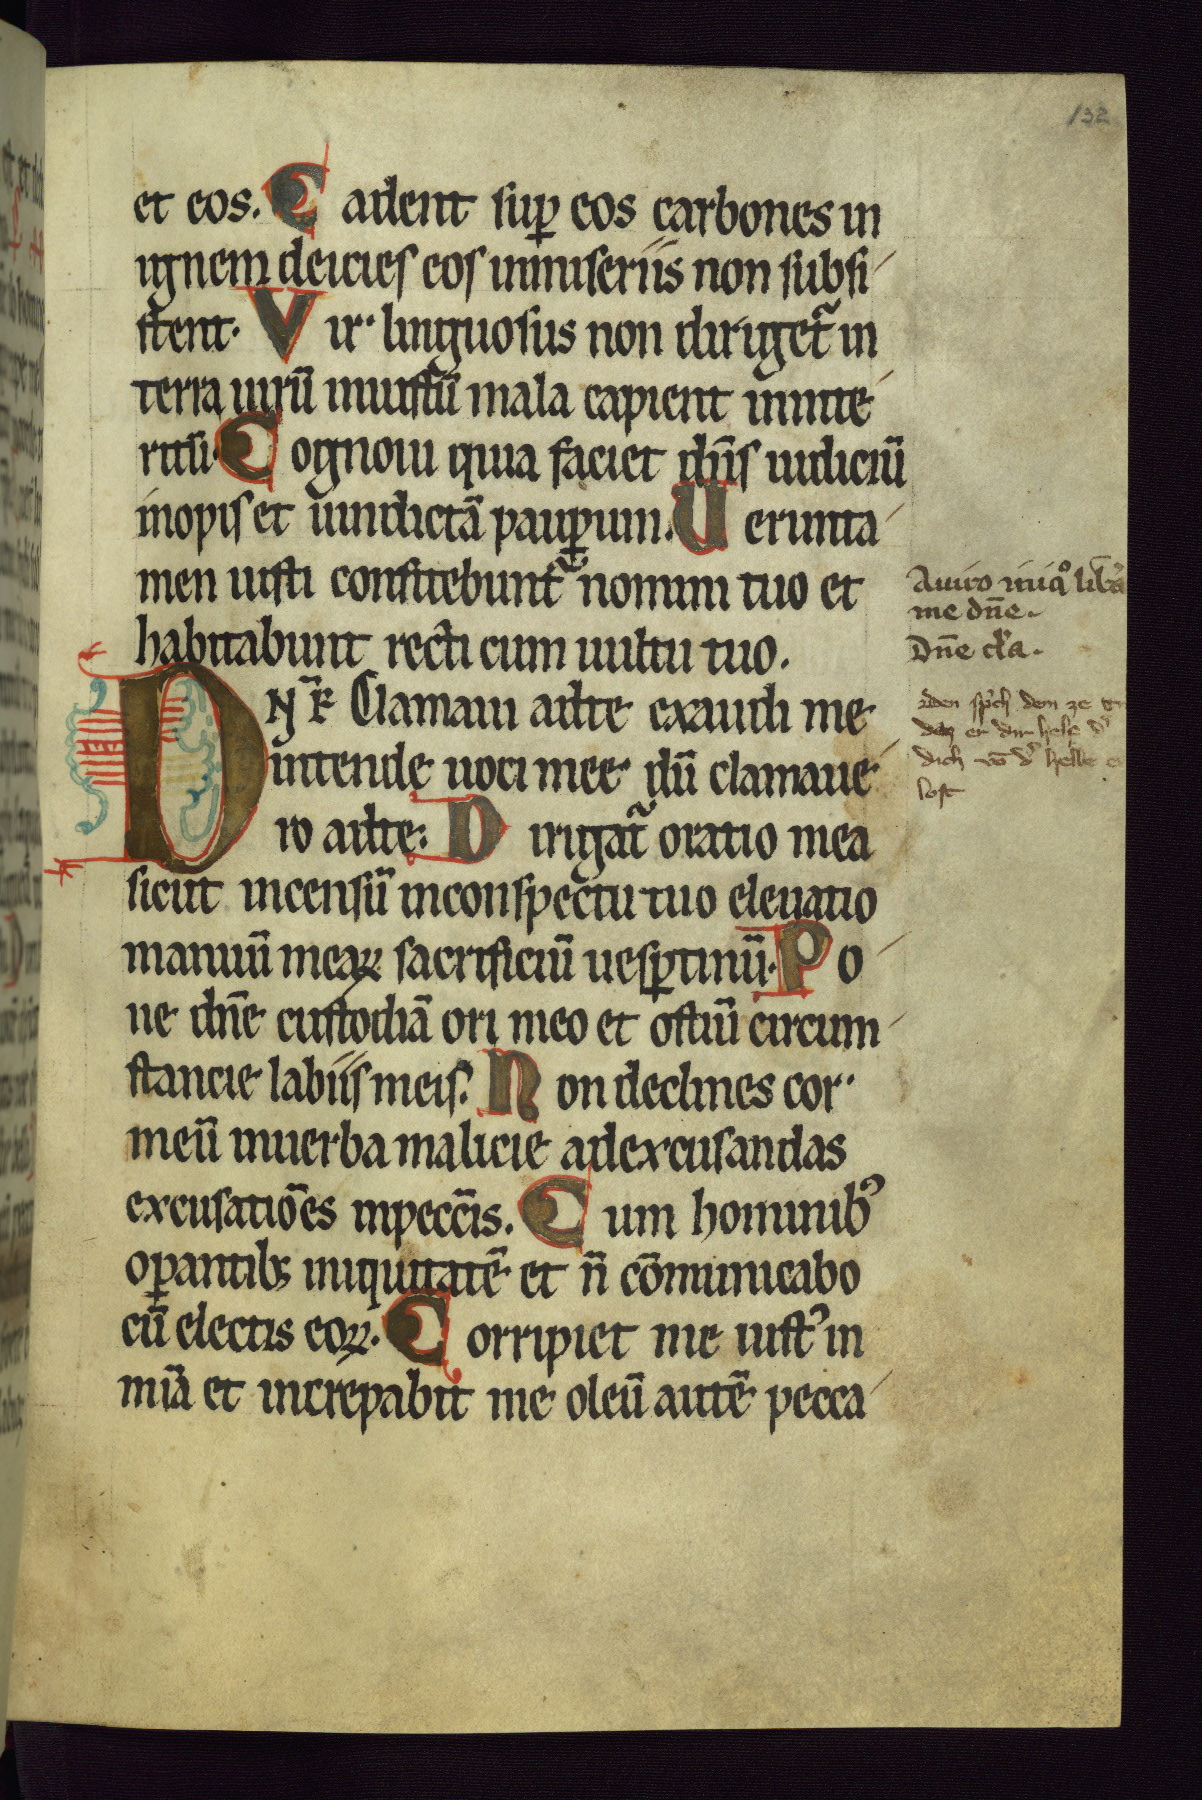 132
et eos. Cadent sup̱ eos carbones in
ignem deicies eos inmiseriis non subsi
stent. Vir linguosus non diriget᷑ in
terra uirū iniustū mala capient in inte
ritu. Cognoui quia faciet dn̄s iudiciū
inopis et uindictā paup̱um. Uerunta
men iusti confitebunt᷑ nomini tuo et
habitabunt recti cum uultu tuo.
Dn̄e Clamaui adte exaudi me
intende uoci mee dū clamaue
ro adte. Dirigat᷑ oratio mea
sicut incensū inconspectu tuo eleuatio
manuū meaꝝ sacrificiū uesp̱tinū. Po
ne dn̄e custodiā ori meo et ostiū circum
stancie labiis meis. Non declines cor
meū inuerba malicie adexcusandas
excusatiōes inpecc̄is. Cum hominibꝰ
op̱antibꝫ iniquitatē et n̄ cōmunicabo
cū electis eoꝝ. Corripiet me iustꝰ in
mīa et increpabit me oleū autē pecca
Auiro iniqͦ lib̄a
me dn̄e.
Dn̄e cl̄a.
den sp̄ch den ze
daz er dir helfe
dich helle
lost